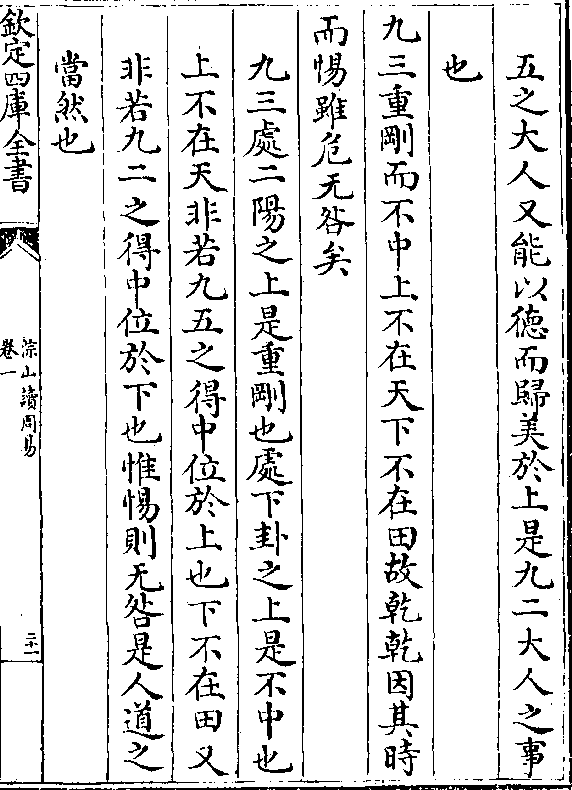 五之大人又能以德而歸美於上是九二大人之事
也
九三重剛而不中上不在天下不在田故乾乾因其時
而惕雖危无咎矣
九三處二陽之上是重剛也處下卦之上是不中也
上不在天非若九五之得中位於上也下不在田又
非若九二之得中位於下也惟惕則无咎是人道之
當然也
欽定四庫全書
淙山讀周易
卷一
二十一